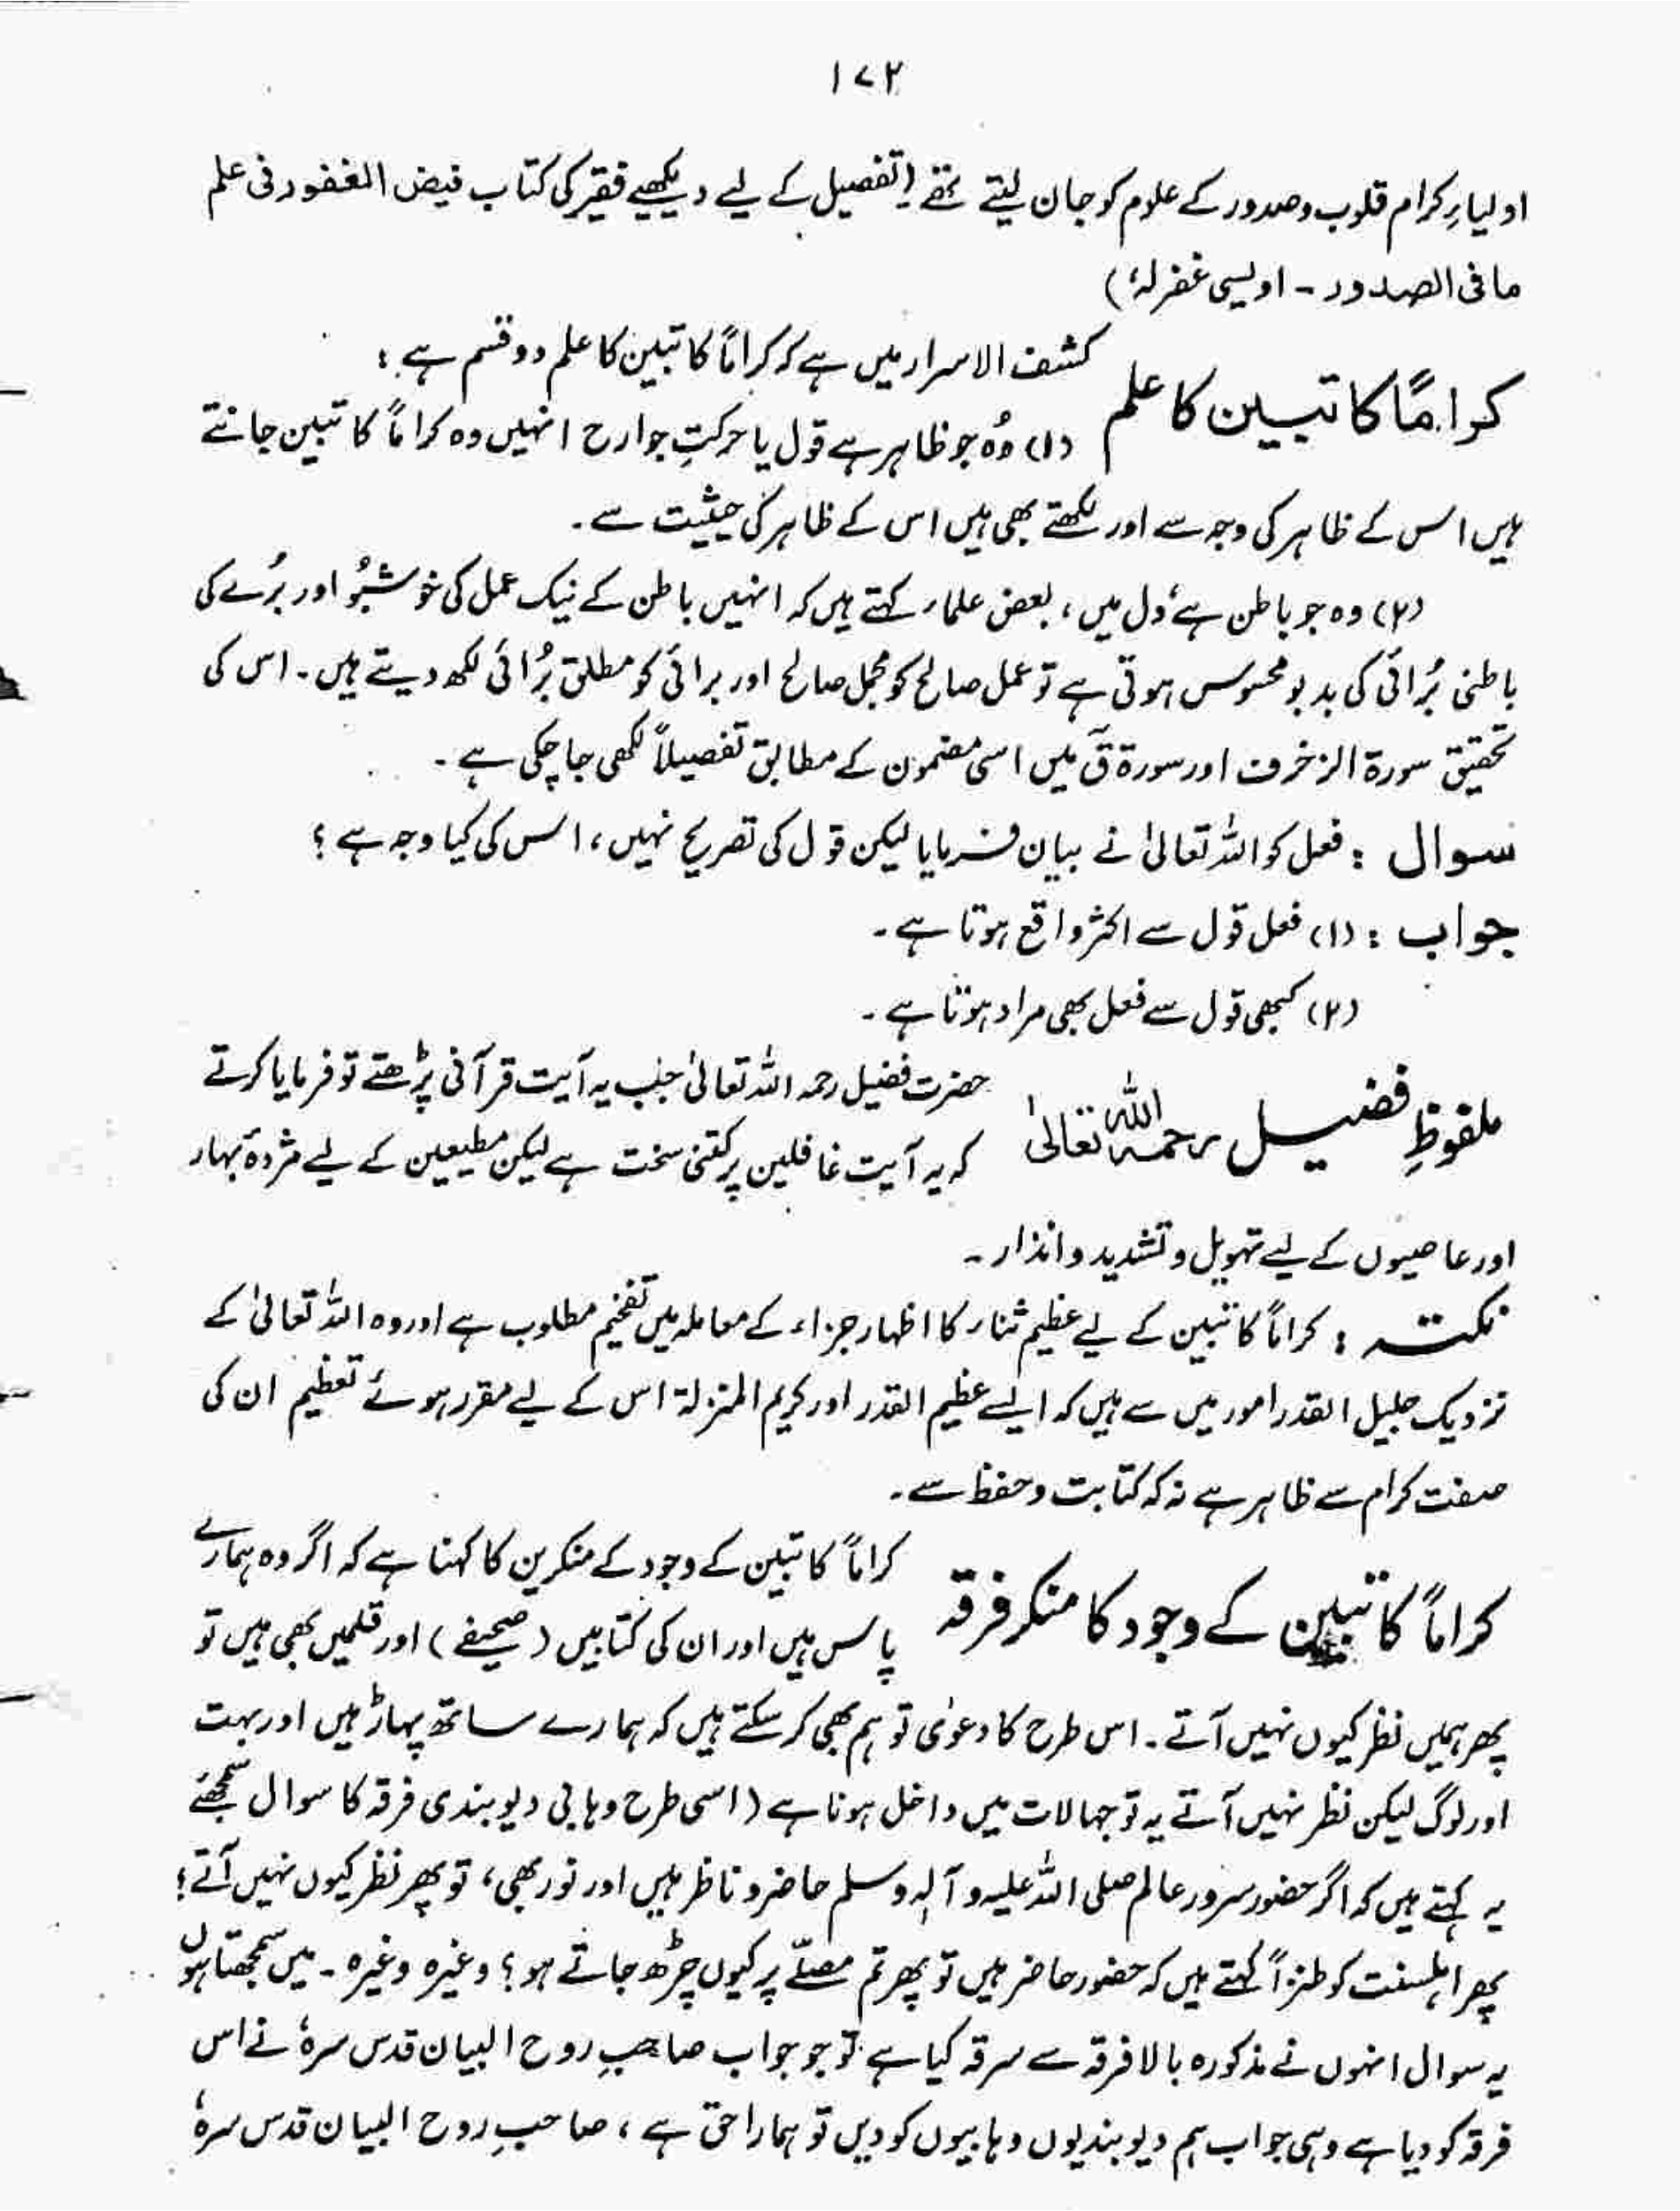 ۱۷۲
اولیاءِ کرام قلوب وصدور کے علوم کو جان لیتے تھے (تفصیل کے لیے دیکھیے فقیر کی کتاب فیض الغفور فی علم
ما فی الصدور - اویسی غفرلہٗ)
کراماً کاتبین کا علم
کشف الاسرار میں ہے کہ کراماً کاتبین کا علم دو قسم ہے :
(۱) وُہ جو ظاہر ہے قول یا حرکتِ جوارح انہیں وہ کراماً کاتبین جانتے
ہیں اس کے ظاہر کی وجہ سے اور لکھتے بھی ہیں اس کے ظاہر کی حیثیت سے۔
(۲) وہ جو باطن ہے دل میں ، بعض علماء کہتے ہیں کہ انہیں باطن کے نیک عمل کی خوشبُو اور بُرے کی
باطنی بُرائی کی بدبو محسوس ہوتی ہے تو عمل صالح کو مجمل صالح اور برائی کو مطلق بُرائی لکھ دیتے ہیں۔ اس کی
تحقیق سورۃ الزخرف اور سورۃ قٓ میں اسی مضمون کے مطابق تفصیلاً لکھی جا چکی ہے۔
سوال : فعل کو اللہ تعالیٰ نے بیان فرمایا لیکن قول کی تصریح نہیں ، اس کی کیا وجہ ہے ؟
جواب : (۱) فعل قول سے اکثر واقع ہوتا ہے۔
(۲) کبھی قول سے فعل بھی مراد ہوتا ہے۔
ملفوظِ فضیل رحمہ اللہ تعالیٰ
حضرت فضیل رحمہ اللہ تعالیٰ جب یہ آیت قرآنی پڑھتے تو فرمایا کرتے
کہ یہ آیت غافلین پر کتنی سخت ہے لیکن مطیعین کے لیے مژدۂ بہار
اور عاصیوں کے لیے تہویل و تشدید و انذار ۔
نکتہ : کراماً کاتبین کے لیے عظیم ثناء کا اظہار جزاء کے معاملہ میں تفخیم مطلوب ہے اور وہ اللہ تعالیٰ کے
نزدیک جلیل القدر امور میں سے ہیں کہ ایسے عظیم القدر اور کریم المنزلۃ اس کے لیے مقرر ہوئے تعظیم ان کی
صفت کرام سے ظاہر ہے نہ کہ کتابت و حفظ سے۔
کراماً کاتبین کے وجود کا منکر فرقہ
کراماً کاتبین کے وجود کے منکرین کا کہنا ہے کہ اگر وہ ہمارے
پاس ہیں اور ان کی کتابیں (صحیفے) اور قلمیں بھی ہیں تو
پھر ہمیں نظر کیوں نہیں آتے۔ اس طرح کا دعوٰی تو ہم بھی کر سکتے ہیں کہ ہمارے ساتھ پہاڑ ہیں اور بہت
اور لوگ لیکن نظر نہیں آتے یہ تو جہالات میں داخل ہونا ہے (اسی طرح وہابی دیوبندی فرقہ کا سوال سمجھئے
یہ کہتے ہیں کہ اگر حضور سرور عالم صلی اللہ علیہ و آلہٖ وسلم حاضر و ناظر ہیں اور نور بھی ، تو پھر نظر کیوں نہیں آتے ؛
پھر اہلسنت کو طنزاً کہتے ہیں کہ حضور حاضر ہیں تو پھر تم مصلّے پر کیوں چڑھ جاتے ہو ؟ وغیرہ وغیرہ ۔ میں سمجھتا ہوں
یہ سوال انہوں نے مذکورہ بالا فرقہ سے سرقہ کیا ہے تو جو جواب صاحبِ روح البیان قدس سرہٗ نے اس
فرقہ کو دیا ہے وہی جواب ہم دیوبندیوں وہابیوں کو دیں تو ہمارا حق ہے ، صاحبِ روح البیان قدس سرہٗ